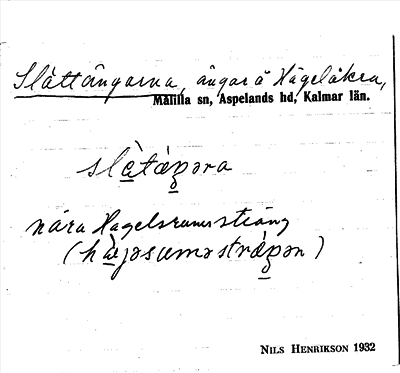 Slättängarna, ängar å Hägelåkra,
Målilla sn, Aspelands hd, Kalmar län.
slàtáŋəra
nära Hagelsrumsträng
(hàjəsuməstráŋən)
NILS HENRIKSON 1932